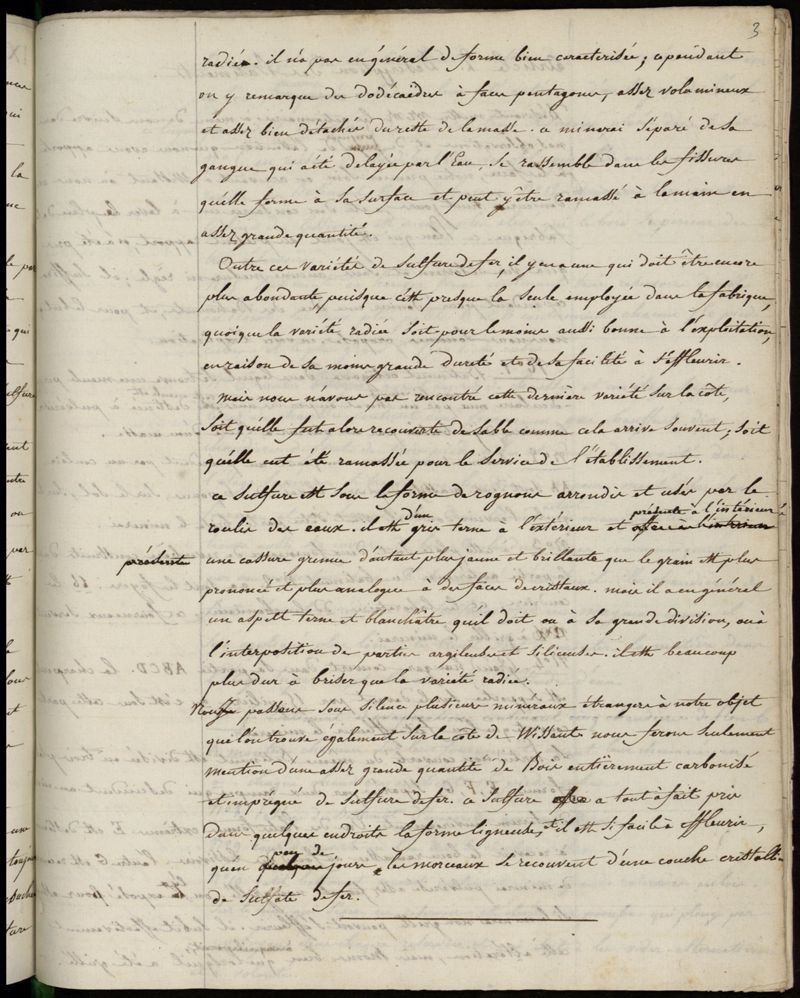 3
radiée. il n'a pas en général de forme bien caracterisée; cependant
on y remarque des dodécaèdres à faces pentagones, assez volumineux
et assez bien détachés du reste de la masse. ce minerai séparé de sa
gangue qui a été delayée par l'Eau, se rassemble dans les fissures
qu'elle forme à sa surface et peut y être ramassé à la main en
assez grande quantité.
Outre ces variétés de sulfure de fer, il y en a une qui doit être encore
plus abondante, puisque c'est presque la seule employée dans la fabrique,
quoique la variété radiée soit pour le moins aussi bonne à l'exploitation,
en raison de sa moins grande dureté et de sa facilité à s'effleurir.
mais nous n'avons pas rencontré cette dernière variété sur la côte,
soit qu'elle fut alors recouverte de sable comme cela arrive souvent, soit
qu'elle eut été ramassée pour le service de l'établissement.
ce sulfure est sous la forme de rognons arrondis et usés par le
roulis des eaux. il est d'un gris terne à l'extérieur et présente à l'intérieur
une cassure grenue d'autant plus jaune et brillante que le grain est plus
prononcé et plus analogue à des faces de cristaux. mais il a en général
un aspect terne et blanchâtre qu'il doit ou à sa grande division, ou à
l'interposition de parties argileuses et siliceuses. il est beaucoup
plus dur à briser que la variété radiée.
Nous passons sous silence plusieurs minéraux étrangers à notre objet
que l'on trouve également sur la côte de Wissant. nous ferons seulement
mention d'une assez grande quantité de Bois entièrement carbonisé
et imprégné de sulfure de fer. ce sulfure a tout à fait pris
dans quelques endroits la forme ligneuse, et il est si facile à effleurir,
qu'en peu de jours, les morceaux se recouvrent d'une couche cristalline
de sulfate de fer.